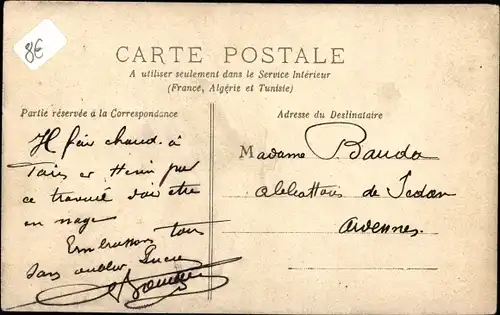 8€
CARTE POSTALE
A utiliser seulement dans le Service Intérieur
(France, Algérie et Tunisie)
Partie réservée à la Correspondance
Adresse du Destinataire
Il fait chaud à
ce travail doit être
en nage
Embrassons tous
Sans oublier
Madame Bauda
de Sedan
Avesnes.